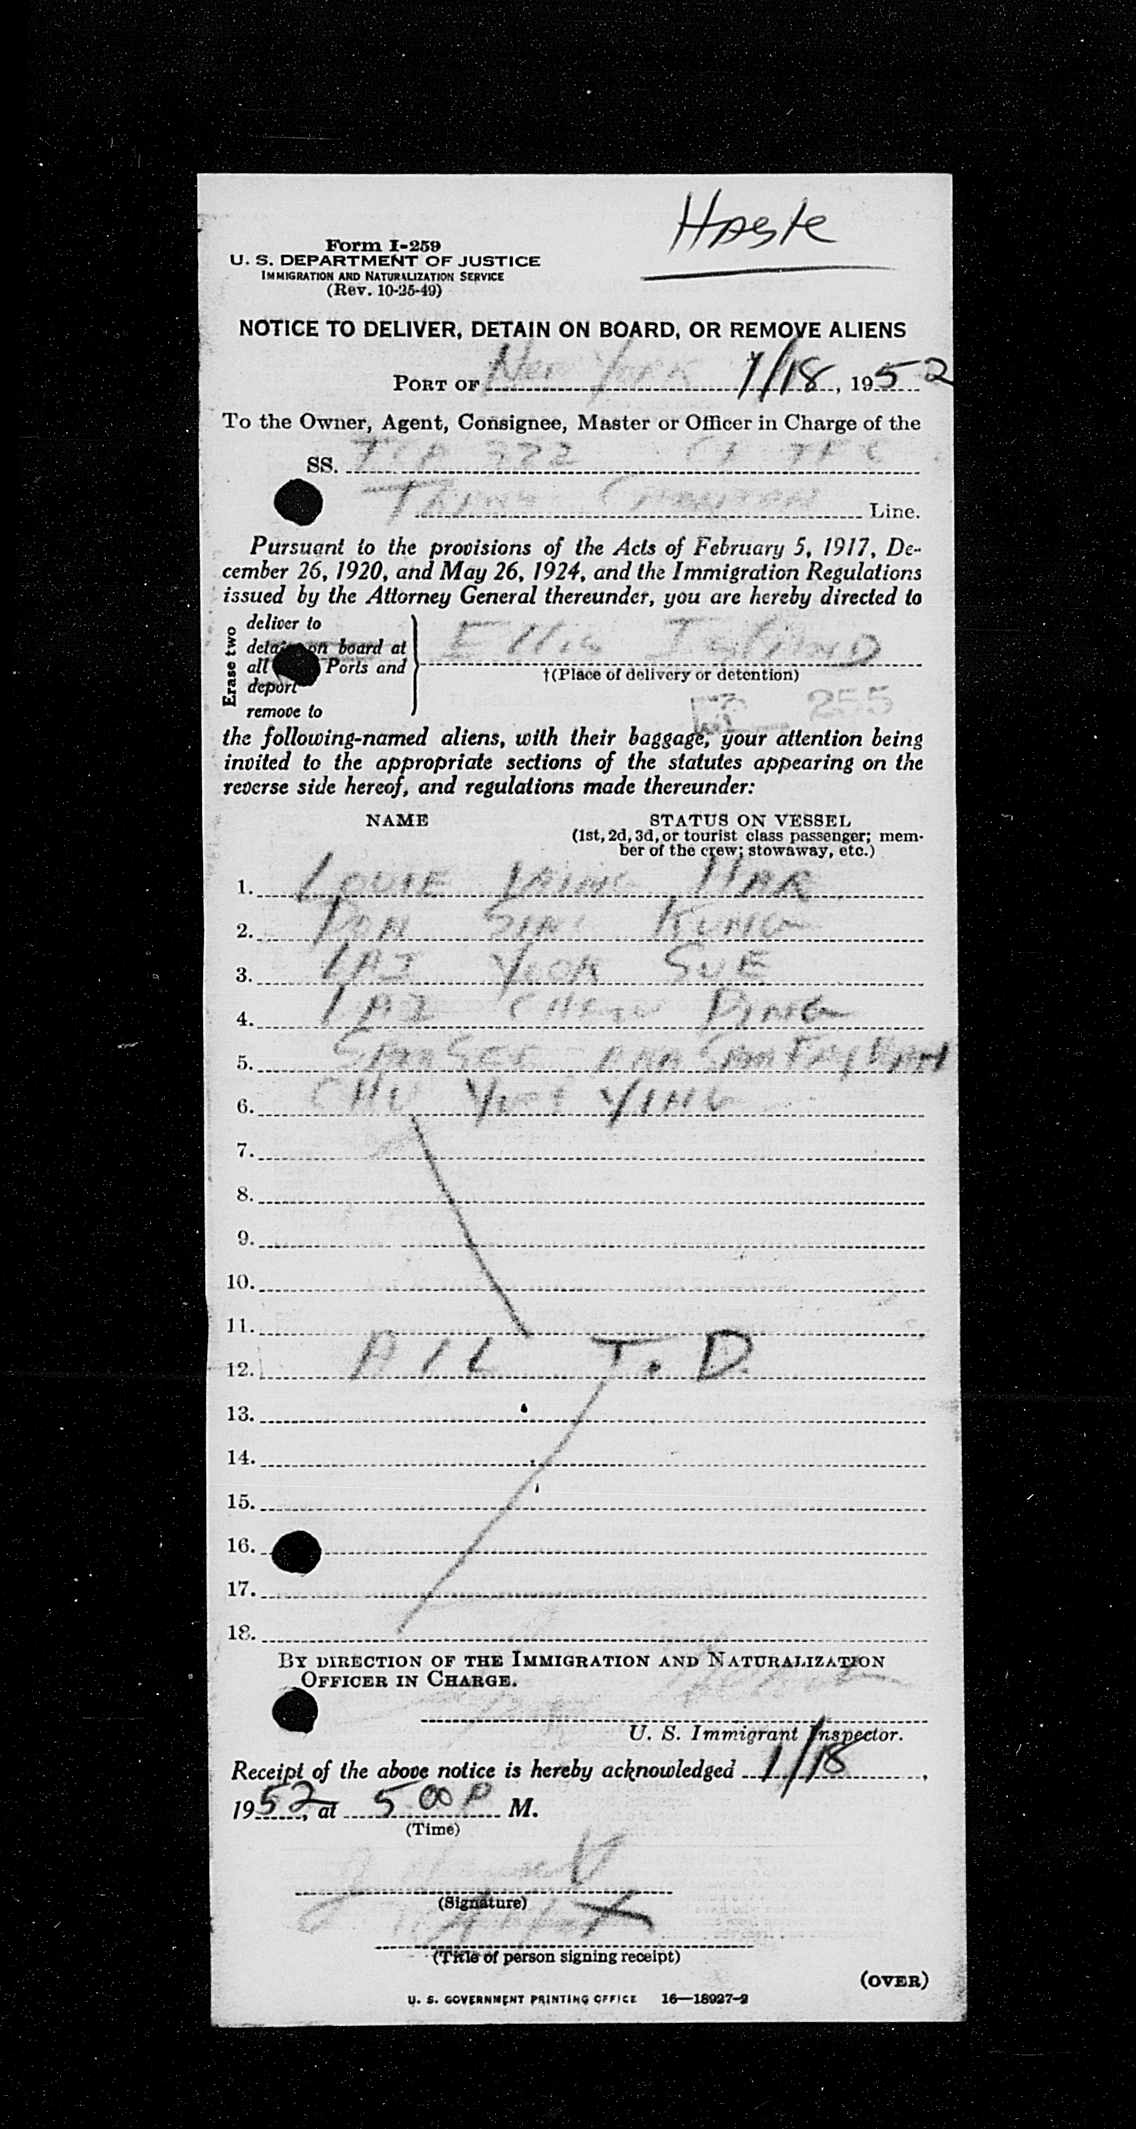 Haste
Form I-259
U. S. DEPARTMENT OF JUSTICE
IMMIGRATION AND NATURALIZATION SERVICE
(Rev. 10-25-49)
NOTICE TO DELIVER, DETAIN ON BOARD, OR REMOVE ALIENS
PORT OF New York 1/18, 1952
To the Owner, Agent, Consignee, Master or Officer in Charge of the
SS. TCA
Trans Line.
Pursuant to the provisions of the Acts of February 5, 1917, De-
cember 26, 1920, and May 26, 1924, and the Immigration Regulations
issued by the Attorney General thereunder, you are hereby directed to
Erase two
deliver to
detain on board at
all Ports and
deport
remove to
Ellis Island
†(Place of delivery or detention)
255
the following-named aliens, with their baggage, your attention being
invited to the appropriate sections of the statutes appearing on the
reverse side hereof, and regulations made thereunder:
NAME STATUS ON VESSEL
(1st, 2d, 3d, or tourist class passenger; mem-
ber of the crew; stowaway, etc.)
1. LOUIE HAR
2. SING KUNG
3. LAI YOOK SUE
4. LAI PING
5.
6. CHU YING
7.
8.
9.
10.
11.
12. ALL T. D.
13.
14.
15.
16.
17.
18.
BY DIRECTION OF THE IMMIGRATION AND NATURALIZATION
OFFICER IN CHARGE.
U. S. Immigrant Inspector.
Receipt of the above notice is hereby acknowledged 1/18,
1952, at 5 00 P M.
(Time)
(Signature)
(Title of person signing receipt)
(OVER)
U. S. GOVERNMENT PRINTING OFFICE 16—18927-2